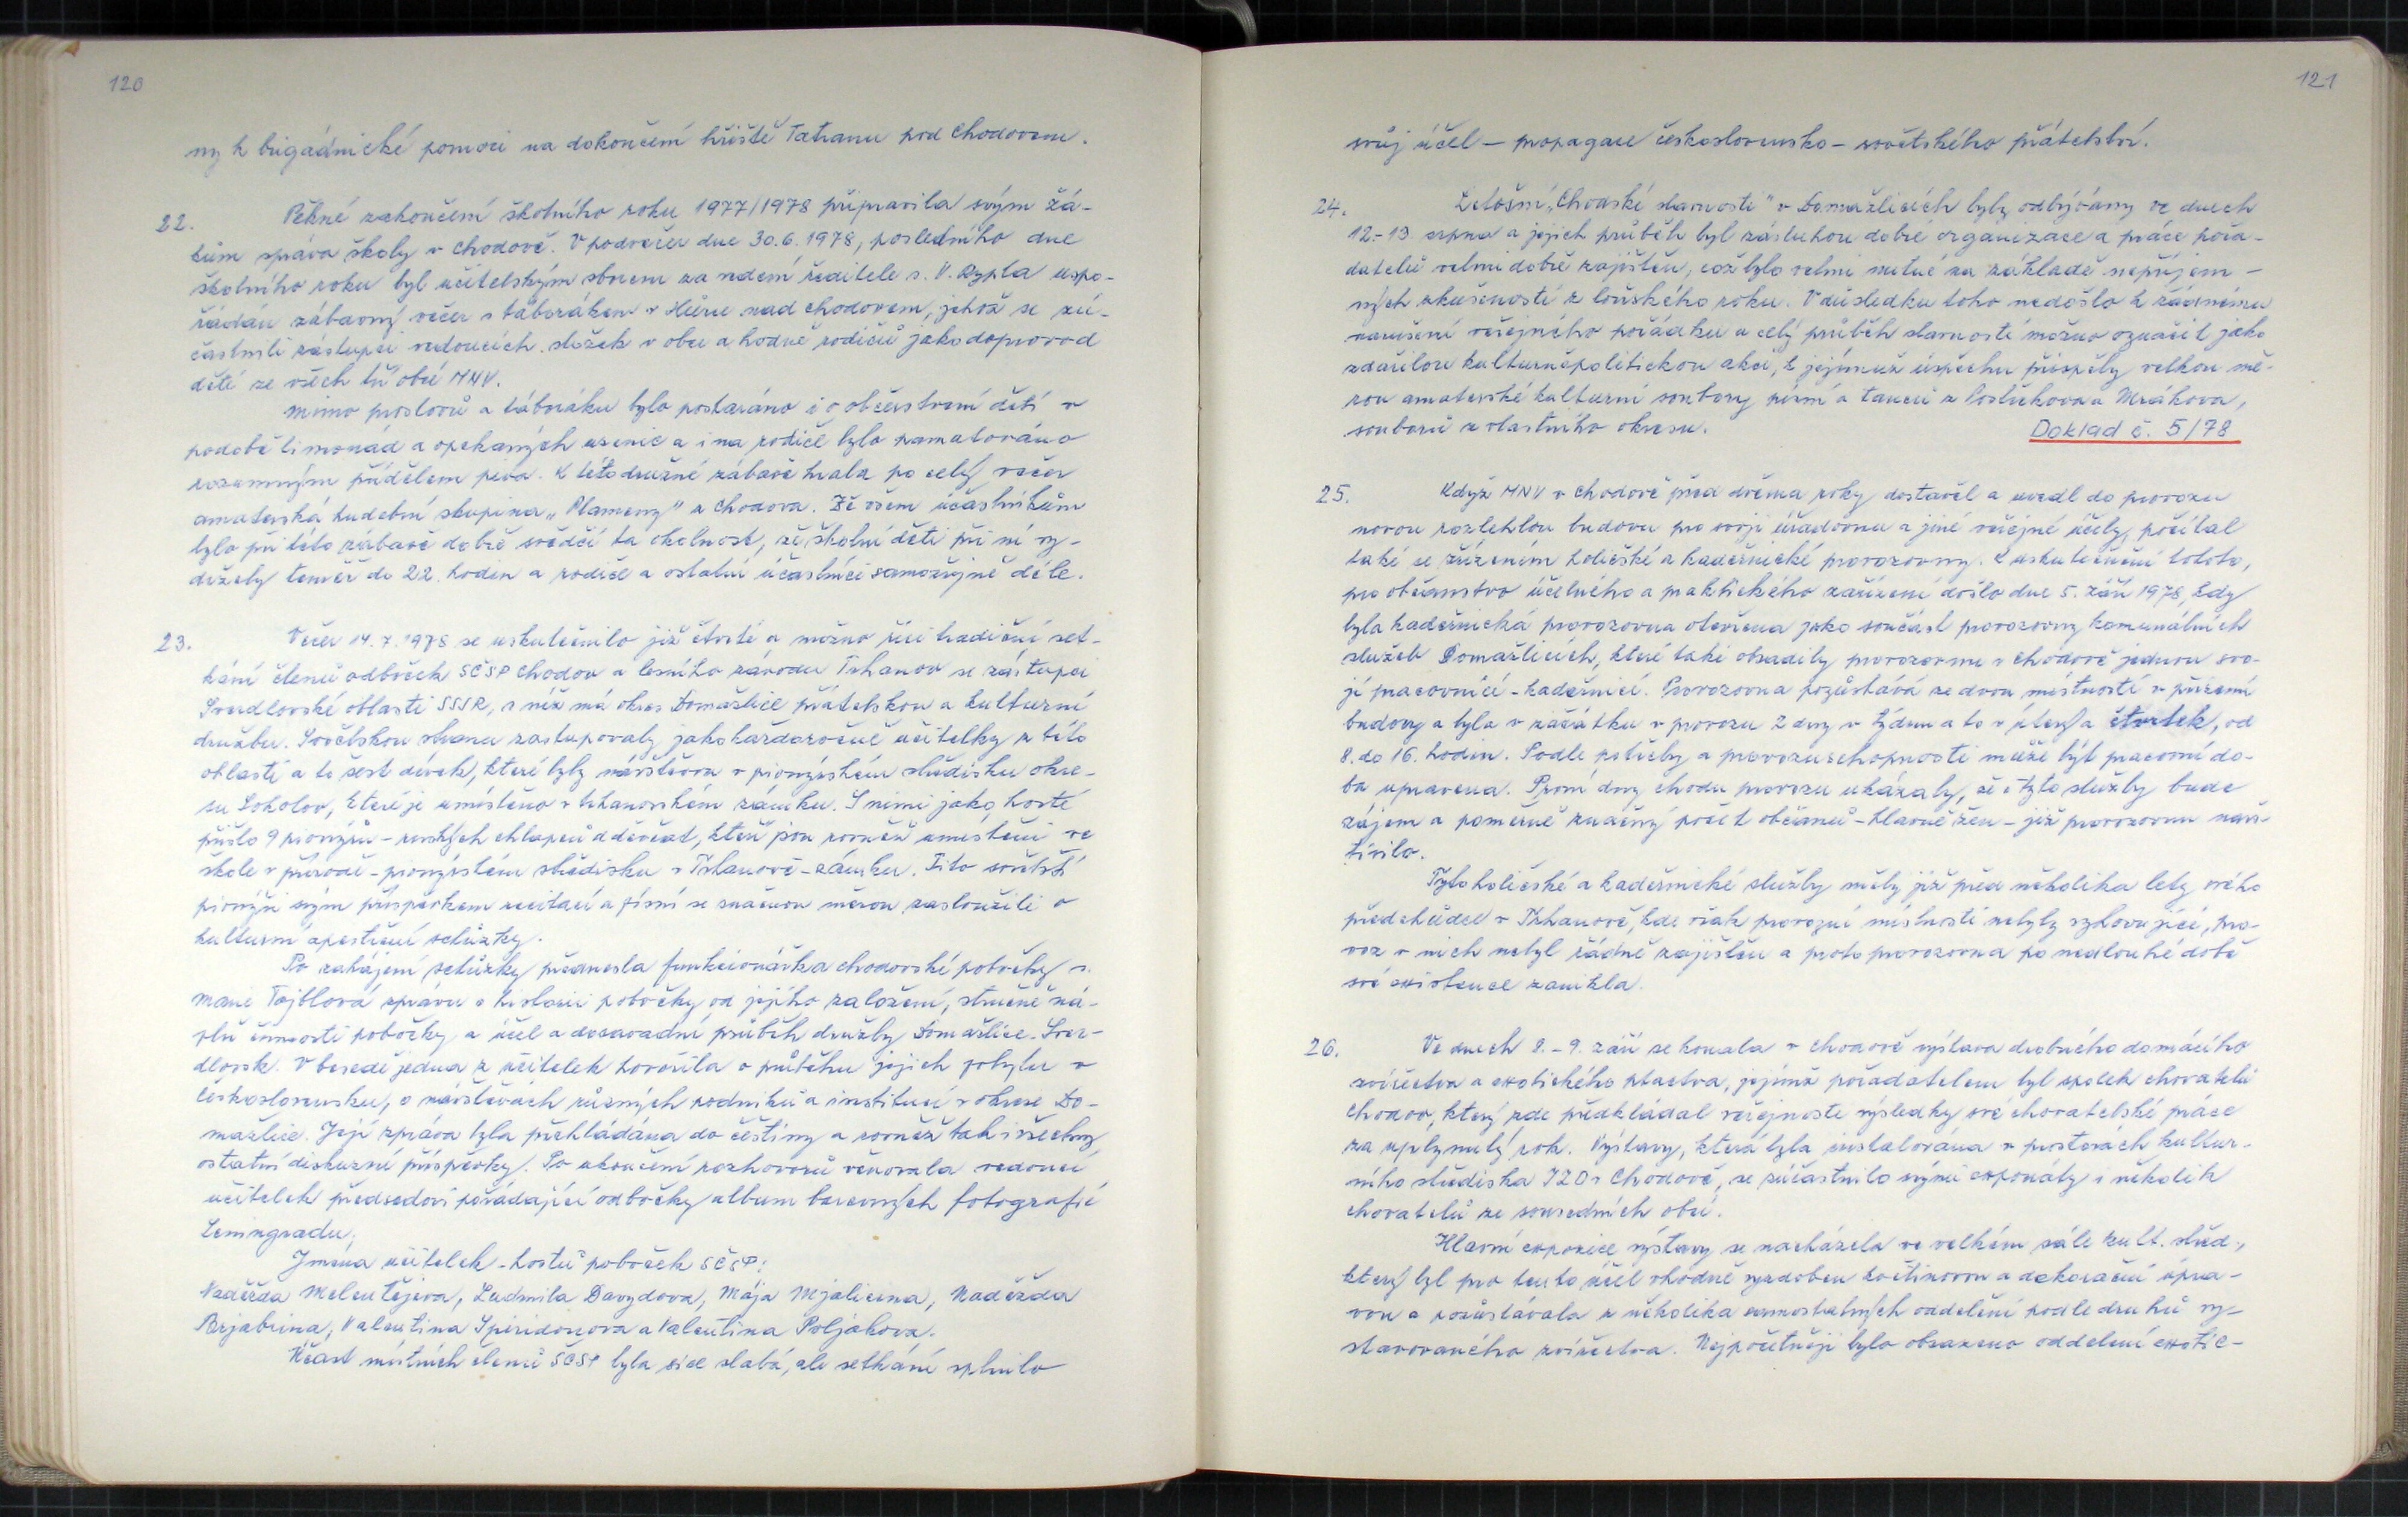 120
ny k brigádnické pomoci na dokončení hřiště Tatranu pod Chodovem.
22. Pěkné zakončení školního roku 1977/1978 připravila svým žá-
kům správa školy v Chodově. V podvečer dne 30.6.1978, posledního dne
školního roku byl učitelským sborem za vedení ředitele s. V. Rypla uspo-
řádán zábavný večer s táborákem v Hůrce nad Chodovem, jehož se zú-
častnili zástupci vedoucích složek v obci a hodně rodičů jako doprovod
dětí ze všech tří obcí MNV.
Mimo proslovů a táboráku bylo postaráno i o občerstvení dětí v
podobě limonád a opekaných uzenic a i na rodiče bylo pamatováno
rozumným přídělem piva. K této družné zábavě hrála po celý večer
amatérská hudební skupina „Plameny" z Chodova. Že všem účastníkům
bylo při této zábavě dobře svědčí ta okolnost, že školní děti při ní vy-
držely téměř do 22. hodin a rodiče a ostatní účastníci samozřejmě déle.
23. Večer 14.7.1978 se uskutečnilo již čtvrté a možno říci tradiční set-
kání členů odboček SČSP Chodov a lesního závodu Trhanov se zástupci
Sverdlovské oblasti SSSR, s níž má okres Domažlice přátelskou a kulturní
družbu. Sovětskou stranu zastupovaly jako každoročně učitelky z této
oblasti a to šest dívek, které byly návštěvou v pionýrském středisku okre-
su Sokolov, které je umístěno v trhanovském zámku. S nimi jako hosté
přišlo 9 pionýrů - ruských chlapců a děvčat, kteří jsou rovněž umístěni ve
škole v přírodě - pionýrském středisku v Trhanově - zámku. Tito sovětští
pionýři svým příspěvkem recitací a písní se značnou měrou zasloužili o
kulturní zpestření schůzky.
Po zahájení schůzky přednesla funkcionářka chodovské pobočky s.
Marie Tojblová zprávu o historii pobočky od jejího založení, stručně ná-
plň činnosti pobočky a účel a dosavadní průběh družby Domažlice - Sver-
dlovsk. V besedě jedna z učitelek hovořila o průběhu jejich pobytu v
Československu, o návštěvách různých podniků a institucí v okrese Do-
mažlice. Její zpráva byla překládána do češtiny a rovněž tak i všechny
ostatní diskuzní příspěvky. Po ukončení rozhovorů věnovala vedoucí
učitelek předsedovi pořádající odbočky album barevných fotografií
Leningradu.
Jména učitelek - hostů poboček SČSP:
Naděžda Melentějeva, Ludmila Davydova, Mája Mjalicina, Naděžda
Brjabrina, Valentina Spiridonova a Valentina Poljakova.
Účast místních členů SČSP byla sice slabá, ale setkání splnilo
121
svůj účel - propagace československo - sovětského přátelství.
24. Letošní „Chodské slavnosti" v Domažlicích byly odbývány ve dnech
12.-13 srpna a jejich průběh byl zásluhou dobré organizace a práce pořa-
datelů velmi dobře zajištěn, což bylo velmi nutné na základě nepříjem-
ných zkušeností z loňského roku. V důsledku toho nedošlo k žádnému
narušení veřejného pořádku a celý průběh slavností možno označit jako
zdařilou kulturněpolitickou akci, k jejímuž úspěchu přispěly velkou mě-
rou amatérské kulturní soubory písní a tanců z Postřekova a Mrákova,
souborů z vlastního okresu. Doklad č. 5/78
25. Když MNV v Chodově před dvěma roky dostavěl a uvedl do provozu
novou rozlehlou budovu pro svoji úřadovnu a jiné veřejné účely, počítal
také se zřízením holičské a kadeřnické provozovny. K uskutečnění tohoto,
pro občanstvo účelného a praktického zařízení došlo dne 5. září 1978, kdy
byla kadeřnická provozovna otevřena jako součást provozovny komunálních
služeb Domažlicích, které také obsadily provozovnu v Chodově jednou svo-
jí pracovnicí - kadeřnicí. Provozovna pozůstává ze dvou místností v přízemí
budovy a byla v začátku v provozu 2 dny v týdnu a to v úterý a čtvrtek, od
8. do 16. hodin. Podle potřeby a provozuschopnosti může být pracovní do-
ba upravena. První dny chodu provozu ukázaly, že o tyto služby bude
zájem a poměrně značný počet občanů - hlavně žen - již provozovnu navš-
tívilo.
Tyto holičské a kadeřnické služby měly již před několika lety svého
předchůdce v Trhanově, kde však provozní místnosti nebyly vyhovující, pro-
voz v nich nebyl řádně zajištěn a proto provozovna po nedlouhé době
své existence zanikla.
26. Ve dnech 8.-9. září se konala v Chodově výstava drobného domácího
zvířectva a exotického ptactva, jejímž pořadatelem byl spolek chovatelů
Chodov, který zde předkládal veřejnosti výsledky své chovatelské práce
za uplynulý rok. Výstavy, která byla instalována v prostorách kultur-
ního střediska JZD v Chodově, se zúčastnilo svými exponáty i několik
chovatelů ze sousedních obcí.
Hlavní expozice výstavy se nacházela ve velkém sále kult. střed.,
který byl pro tento účel vhodně vyzdoben květinovou a dekorační úpra-
vou a pozůstávala z několika samostatných oddělení podle druhů vy-
stavovaného zvířectva. Nejpočetněji bylo obsazeno oddělení exotic-